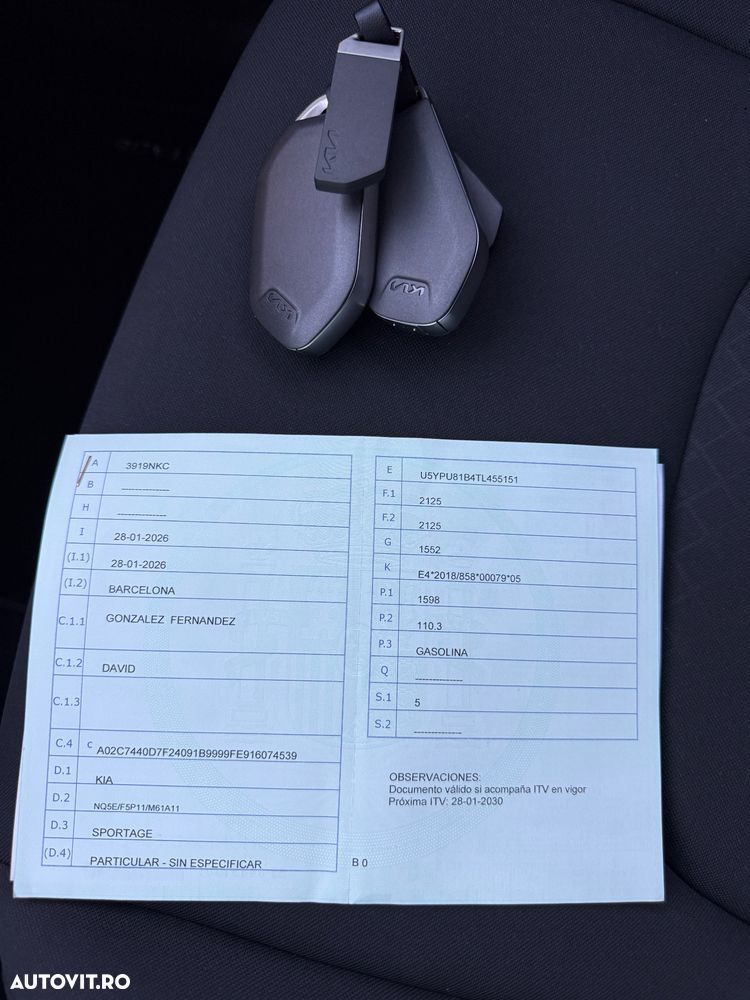 KIA
KIA
KIA
A 3919NKC
B --------------
H --------------
I 28-01-2026
(I.1) 28-01-2026
(I.2) BARCELONA
C.1.1 GONZALEZ FERNANDEZ
C.1.2 DAVID
C.1.3
C.4 c A02C7440D7F24091B9999FE916074539
D.1 KIA
D.2 NQ5E/F5P11/M61A11
D.3 SPORTAGE
(D.4) PARTICULAR - SIN ESPECIFICAR
E U5YPU81B4TL455151
F.1 2125
F.2 2125
G 1552
K E4*2018/858*00079*05
P.1 1598
P.2 110.3
P.3 GASOLINA
Q --------------
S.1 5
S.2 --------------
OBSERVACIONES:
Documento válido si acompaña ITV en vigor
Próxima ITV: 28-01-2030
B 0
AUTOVIT.RO